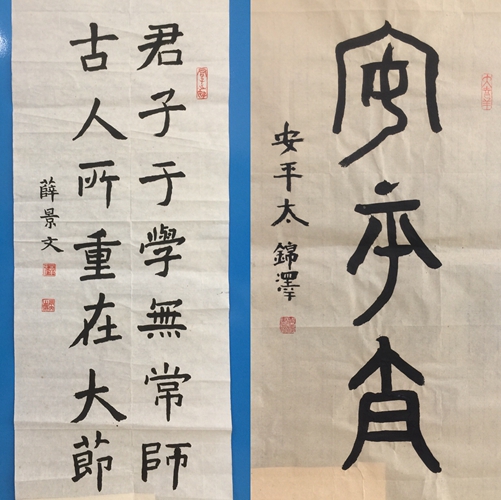 君子于學無常師
古人所重在大節
薛景文
安平太
安平太 錦澤